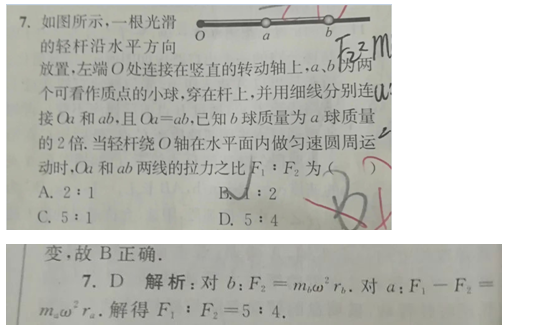 7. 如图所示,一根光滑
O a b
的轻杆沿水平方向
F₂²m
放置,左端O处连接在竖直的转动轴上,a、b为两
个可看作质点的小球,穿在杆上,并用细线分别连
接Oa和ab,且Oa=ab,已知b球质量为a球质量
的2倍.当轻杆绕O轴在水平面内做匀速圆周运
动时,Oa和ab两线的拉力之比F₁:F₂为( )
A. 2:1 B. 1:2
C. 5:1 D. 5:4
B
变,故B正确.
7. D 解析:对b:F₂=m_bω²r_b.对a:F₁-F₂=
m_aω²r_a.解得F₁:F₂=5:4.